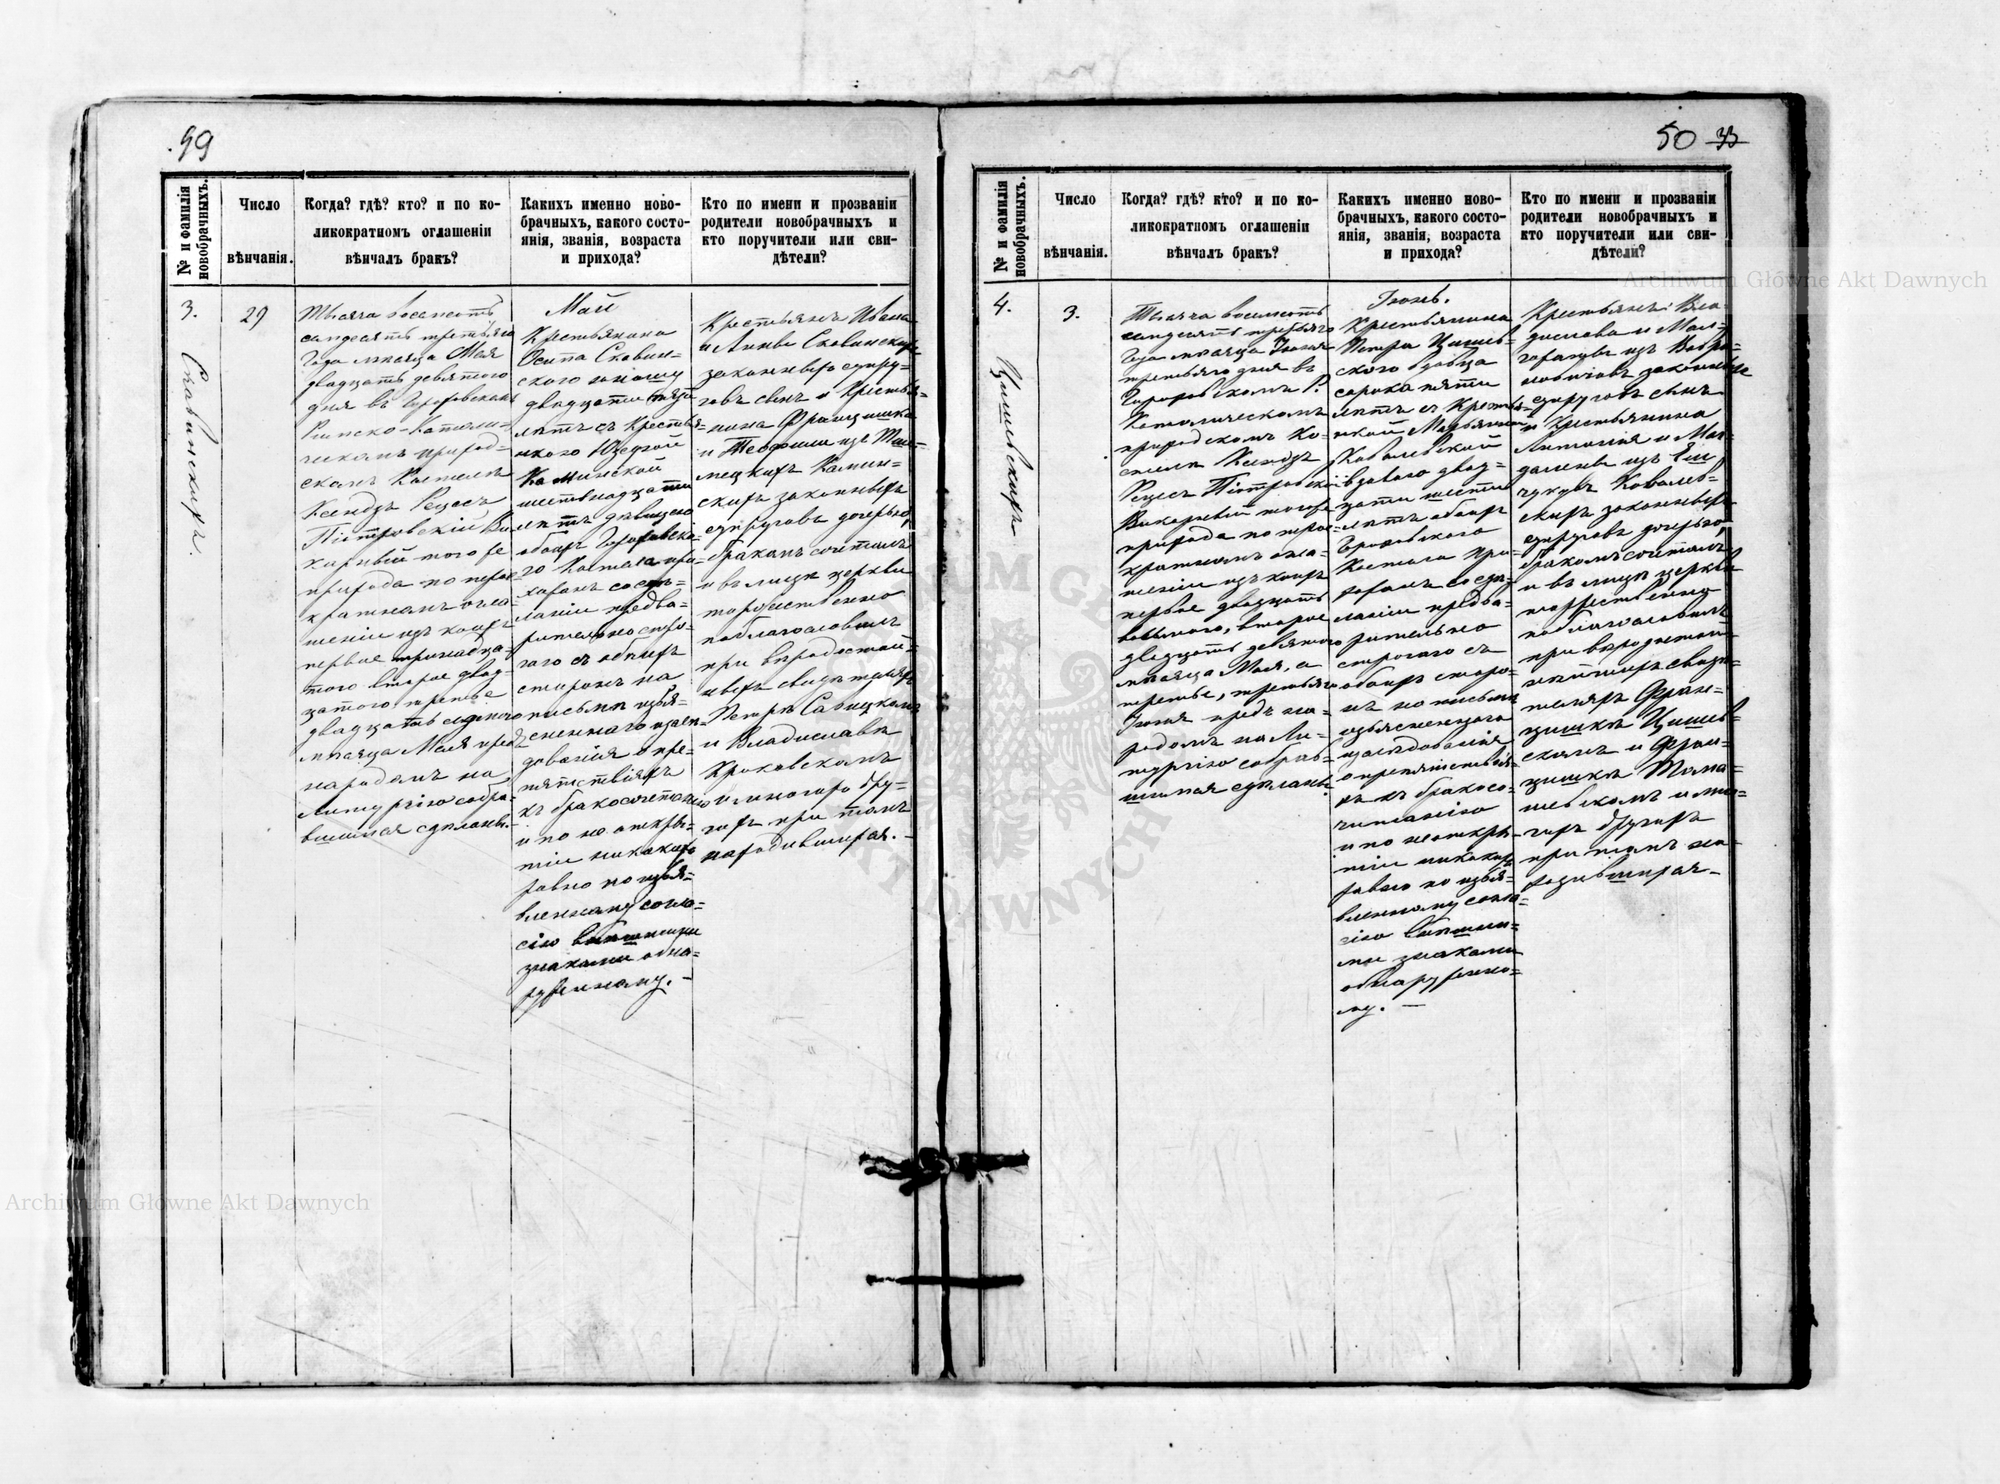 99
№ и фамилія новобрачныхъ.
Число вѣнчанія.
Когда? гдѣ? кто? и по коликократномъ оглашеніи вѣнчалъ бракъ?
Какихъ именно новобрачныхъ, какого состоянія, званія, возраста и прихода?
Кто по имени и прозваніи родители новобрачныхъ и кто поручители или свидѣтели?
3.
29
Тысяча восемьсотъ
семдесятъ третьяго
года мѣсяца Мая
двадцать девятого
дня въ
Римско-Католи-
ческомъ приход-
скомъ Костелѣ
Ксендзъ
Піотровскій Ви-
карный того же
прихода по трое-
кратномъ огла-
шеніи изъ коихъ
первое тринадца-
того второе двад-
цатого третье
двадцать седьмого
мѣсяца Мая предъ
народомъ на
Литургію собра-
вшимся сдѣланы.
Май
Крестьянина
Осипа Славин-
ского юношу
двадцати
лѣтъ съ Крестья-
нкою Юзефой
Каминской
шестьнадцати
лѣтъ дѣвицею
обоихъ
го Костела при-
хожанъ со сдѣ-
ланіи предва-
рительно стро-
гаго съ обоихъ
сторонъ на
письмѣ изъя-
сненнаго изслѣ-
дованія о пре-
пятствіяхъ
къ бракосочетанію
и по не откры-
тіи никакихъ
равно по изъя-
вленному согла-
сію внѣшними
знаками обна-
руженному. –
Крестьянъ Ивана
и Анны Славинскихъ
законныхъ супру-
говъ сынъ и Крестья-
нина Францишка
и Теофили изъ
Камин-
скихъ законныхъ
супруговъ дочерью,
бракомъ сочеталъ
и въ лицѣ церкви
торжественно
поблагословилъ
при вѣродостой-
ныхъ свидѣтеляхъ
Петрѣ Савицкомъ
и Владиславѣ
Краковскомъ
и многихъ дру-
гихъ при томъ
находившихся. –
Славинскихъ.
50 33
№ и фамилія новобрачныхъ.
Число вѣнчанія.
Когда? гдѣ? кто? и по коликократномъ оглашеніи вѣнчалъ бракъ?
Какихъ именно новобрачныхъ, какого состоянія, званія, возраста и прихода?
Кто по имени и прозваніи родители новобрачныхъ и кто поручители или свидѣтели?
4.
3.
Тысяча восемьсотъ
семдесятъ третьяго
года мѣсяца Іюня
третьяго дня въ
Р.
Католическомъ
приходскомъ Ко-
стелѣ Ксендзъ
Піотровскій
Викарный того же
прихода по трое-
кратномъ огла-
шеніи изъ коихъ
первое двадцать
второе
двадцать девятого
мѣсяца Мая, а
третье, третьяго
Іюня предъ на-
родомъ на Ли-
тургію собрав-
шимся сдѣланы.
Іюнь.
Крестьянина
Петра Цишев-
ского вдовца
сорока пяти
лѣтъ съ Крестья-
нкой Марьянной
Ковалевской
вдовою двад-
цати шести
лѣтъ обоихъ
Костела при-
хожанъ со сдѣ-
ланіи предва-
рительно
строгаго съ
обоихъ сторо-
нъ на письмѣ
изъясненнаго
изслѣдованія
о препятствія-
хъ къ бракосо-
четанію
и по неоткры-
тіи никакихъ
равно по изъя-
вленному согла-
сію внѣшни-
ми знаками
обнаруженно-
му. –
Крестьянъ Вла-
дислава и Мал-
горжаты изъ
законныхъ
супруговъ сынъ
и Крестьянина
Антонія и Маг-
далены изъ
Ковалев-
скихъ законныхъ
супруговъ дочерью,
бракомъ сочеталъ
и въ лицѣ церкви
торжественно
поблагословилъ
при вѣродостой-
нѣйшихъ свидѣ-
теляхъ Фран-
цишкѣ Цишев-
скомъ и Фран-
цишкѣ Тома-
шевскомъ и мно-
гихъ другихъ
при томъ на-
ходившихся –
Цишевскихъ
Archiwum Główne Akt Dawnych
Archiwum Główne Akt Dawnych